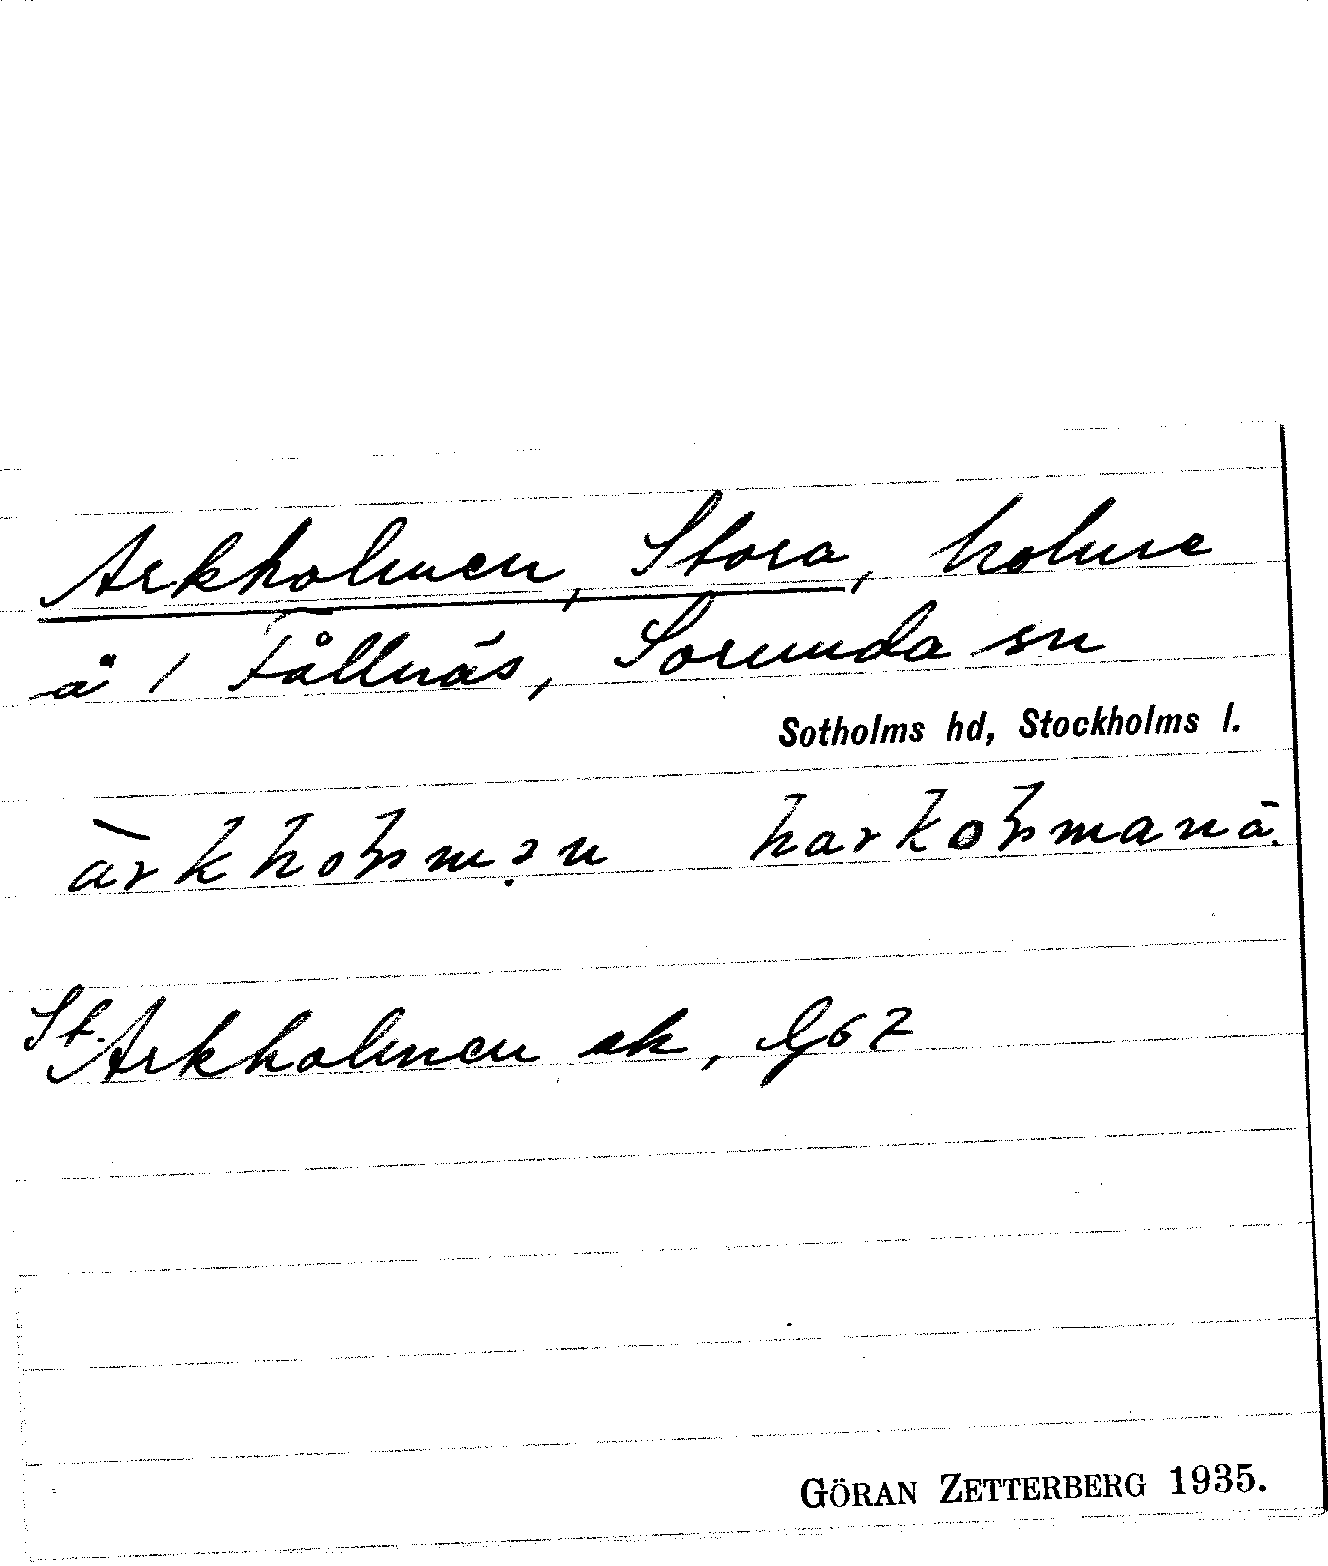 Arkholmen, Stora, holme
ä 1 Fållnäs, Sorunda sn
Sotholms hd, Stockholms l.
St. Arkholmen ek, G67
GÖRAN ZETTERBERG 1935.